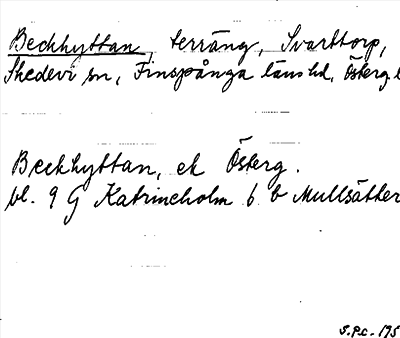 Beckhyttan, terräng, Svarttorp,
Skedevi sn, Finspånga läns hd, Österg.
Beckhyttan, ek Österg.
bl. 9 G Katrineholm 6 b Mullsätter
S.P.C. 195